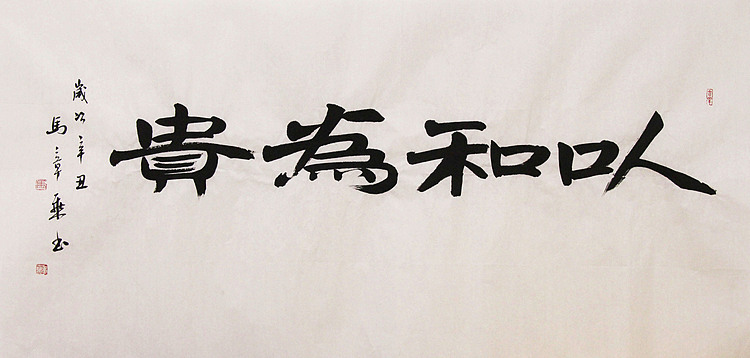 以和為貴
歲次辛丑
馬漳乘书